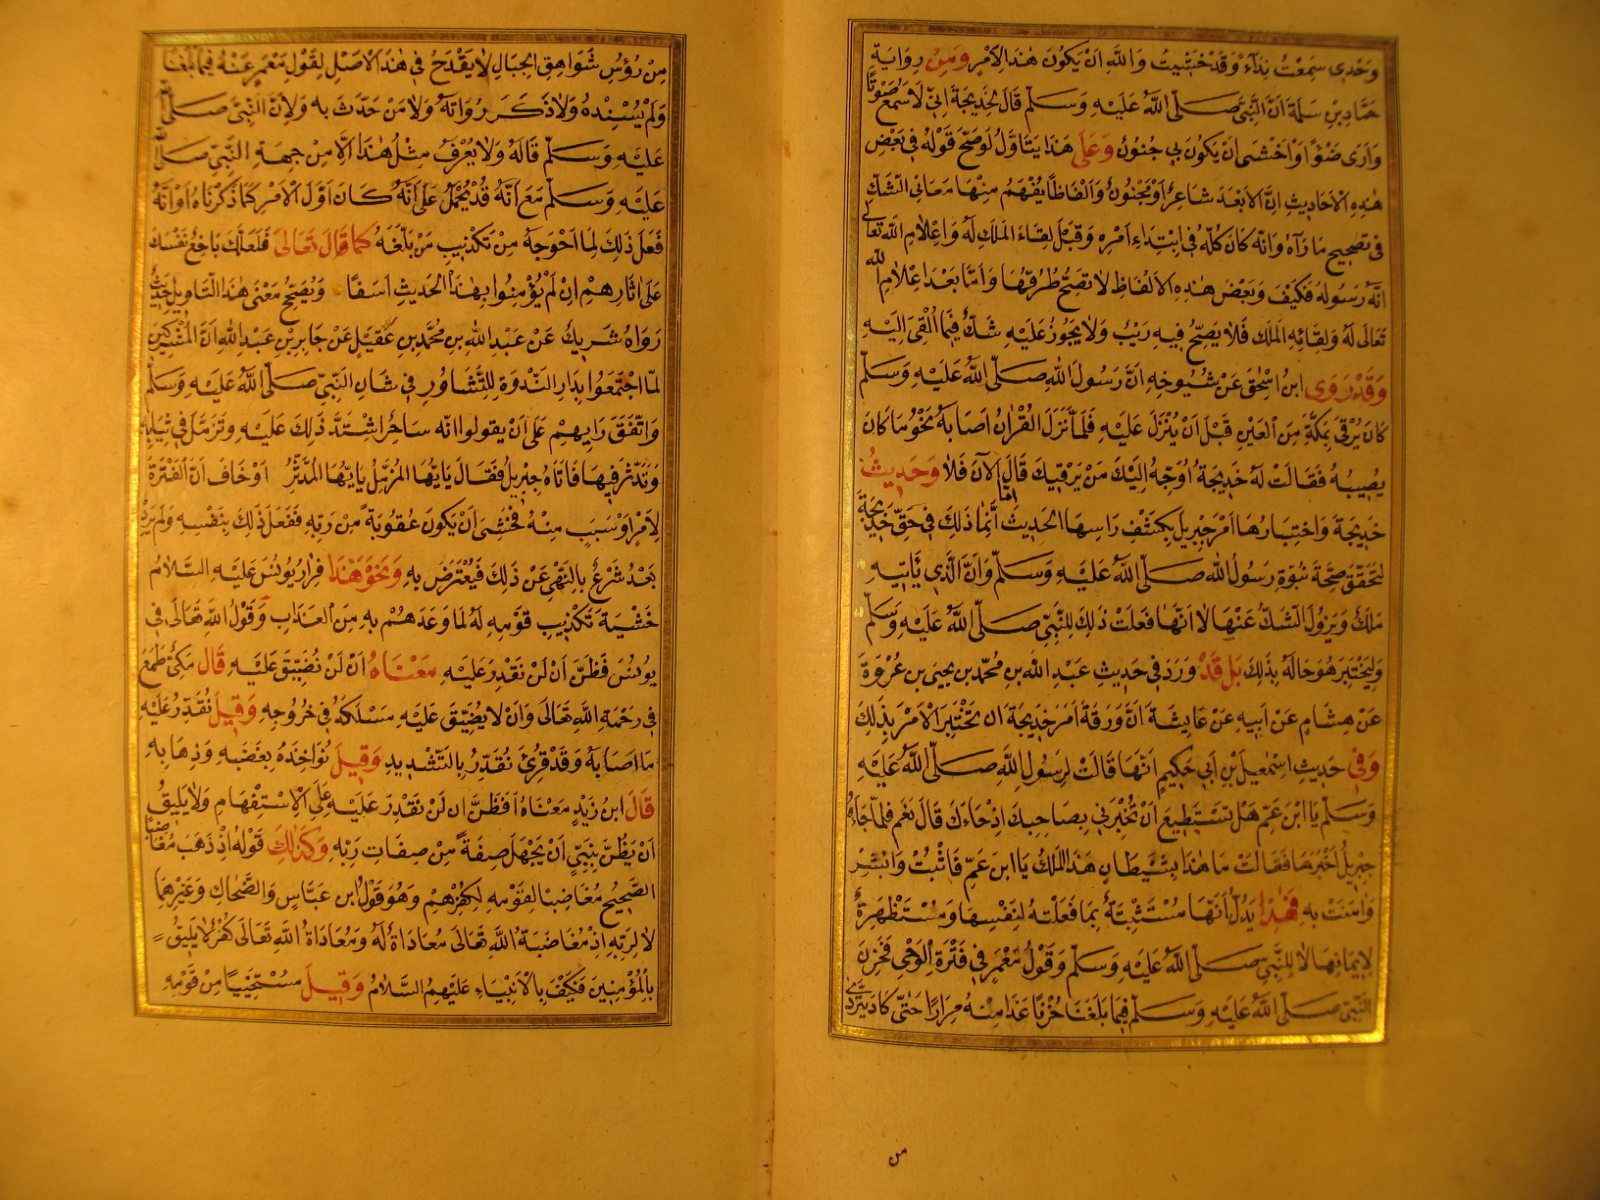 وَحْدِي سَمِعْتُ نِدَاءً وَقَدْ خَشِيتُ وَاللَّهِ اَنْ يَكُونَ هٰذَا لِاَمْرٍ وَمِنْ رِوَايَةِ
حَمَّادِ بْنِ سَلَمَةَ اَنَّ النَّبِيَّ صَلَّى اللَّهُ عَلَيْهِ وَسَلَّمَ قَالَ لِخَدِيجَةَ اِنِّي لَاَسْمَعُ صَوْتًا
وَاَرَى ضَوْءًا وَاَخْشَى اَنْ يَكُونَ بِي جُنُونٌ وَعَلَى هٰذَا يُتَاَوَّلُ لَوْ صَحَّ قَوْلُهُ فِي بَعْضِ
هٰذِهِ الْاَحَادِيثِ اِنَّ الْاَبْعَدَ شَاعِرٌ اَوْ مَجْنُونٌ وَاَلْفَاظًا يُفْهَمُ مِنْهَا مَعَانِي الشَّكِّ
فِي تَصْحِيحِ مَا رَآهُ وَاَنَّهُ كَانَ كُلُّهُ فِي ابْتِدَاءِ اَمْرِهِ وَقَبْلَ لِقَاءِ الْمَلَكِ لَهُ وَاِعْلَامِ اللَّهِ تَعَالَى لَهُ
اَنَّهُ رَسُولُهُ فَكَيْفَ وَبَعْضُ هٰذِهِ الْاَلْفَاظِ لَا تَصِحُّ طُرُقُهَا وَاَمَّا بَعْدَ اِعْلَامِ اللَّهِ
تَعَالَى لَهُ وَلِقَائِهِ الْمَلَكَ فَلَا يَصِحُّ فِيهِ رَيْبٌ وَلَا يَجُوزُ عَلَيْهِ شَكٌّ فِيمَا اُلْقِيَ اِلَيْهِ
وَقَدْ رَوَى ابْنُ اِسْحٰقَ عَنْ شُيُوخِهِ اَنَّ رَسُولَ اللَّهِ صَلَّى اللَّهُ عَلَيْهِ وَسَلَّمَ
كَانَ يُرْقَى بِمَكَّةَ مِنَ الْعَيْنِ قَبْلَ اَنْ يُنْزَلَ عَلَيْهِ فَلَمَّا نَزَلَ الْقُرْاٰنُ اَصَابَهُ نَحْوُ مَا كَانَ
يُصِيبُهُ فَقَالَتْ لَهُ خَدِيجَةُ اُوَجِّهُ اِلَيْكَ مَنْ يَرْقِيكَ قَالَ اَمَّا الْآنَ فَلَا وَحَدِيثُ
خَدِيجَةَ وَاخْتِبَارُهَا اَمْرَ جِبْرِيلَ بِكَشْفِ رَاسِهَا الْحَدِيثَ اِنَّمَا ذٰلِكَ فِي حَقِّ خَدِيجَةَ
لِتَحَقُّقِ صِحَّةِ نُبُوَّةِ رَسُولِ اللَّهِ صَلَّى اللَّهُ عَلَيْهِ وَسَلَّمَ وَاَنَّ الَّذِي يَاْتِيهِ
مَلَكٌ وَيَزُولُ الشَّكُّ عَنْهَا لَا اَنَّهَا فَعَلَتْ ذٰلِكَ لِلنَّبِيِّ صَلَّى اللَّهُ عَلَيْهِ وَسَلَّمَ
وَلِيَخْتَبِرَ هُوَ حَالَهُ بِذٰلِكَ بَلْ قَدْ وَرَدَ فِي حَدِيثِ عَبْدِ اللَّهِ بْنِ مُحَمَّدِ بْنِ يَحْيَى بْنِ عُرْوَةَ
عَنْ هِشَامٍ عَنْ اَبِيهِ عَنْ عَايِشَةَ اَنَّ وَرَقَةَ اَمَرَ خَدِيجَةَ اَنْ تَخْتَبِرَ الْاَمْرَ بِذٰلِكَ
وَفِي حَدِيثِ اِسْمٰعِيلَ بْنِ اَبِي حَكِيمٍ اَنَّهَا قَالَتْ لِرَسُولِ اللَّهِ صَلَّى اللَّهُ عَلَيْهِ
وَسَلَّمَ يَا ابْنَ عَمِّ هَلْ تَسْتَطِيعُ اَنْ تُخْبِرَنِي بِصَاحِبِكَ اِذْ جَاءَكَ قَالَ نَعَمْ فَلَمَّا جَاءَهُ
جِبْرِيلُ اَخْبَرَهَا فَقَالَتْ مَا هٰذَا بِشَيْطَانٍ هٰذَا الْمَلَكُ يَا ابْنَ عَمِّ فَاثْبُتْ وَابْشِرْ
وَاٰمَنَتْ بِهِ فَهٰذَا يَدُلُّ اَنَّهَا مُسْتَثْبِتَةٌ بِمَا فَعَلَتْهُ لِنَفْسِهَا وَمُسْتَظْهِرَةٌ
لِاِيمَانِهَا لَا لِلنَّبِيِّ صَلَّى اللَّهُ عَلَيْهِ وَسَلَّمَ وَقَوْلُ مَعْمَرٍ فِي فَتْرَةِ الْوَحْيِ فَحَزِنَ
النَّبِيُّ صَلَّى اللَّهُ عَلَيْهِ وَسَلَّمَ فِيمَا بَلَغَنَا حُزْنًا غَدَا مِنْهُ مِرَارًا حَتَّى كَادَ يَتَرَدَّى
من
مِنْ رُؤُسِ شَوَاهِقِ الْجِبَالِ لَا يَقْدَحُ فِي هٰذَا الْاَصْلِ لِقَوْلِ مَعْمَرٍ عَنْهُ فِيمَا بَلَغَنَا
وَلَمْ يُسْنِدْهُ وَلَا ذَكَرَ رُوَاتَهُ وَلَا مَنْ حَدَّثَ بِهِ وَلَا اَنَّ النَّبِيَّ صَلَّى اللَّهُ
عَلَيْهِ وَسَلَّمَ قَالَهُ وَلَا يُعْرَفُ مِثْلُ هٰذَا اِلَّا مِنْ جِهَةِ النَّبِيِّ صَلَّى اللَّهُ
عَلَيْهِ وَسَلَّمَ مَعَ اَنَّهُ قَدْ يُحْمَلُ عَلَى اَنَّهُ كَانَ اَوَّلَ الْاَمْرِ كَمَا ذَكَرْنَاهُ اَوْ اَنَّهُ
فَعَلَ ذٰلِكَ لِمَا اَحْرَجَهُ مِنْ تَكْذِيبِ مَنْ بَلَّغَهُ كَمَا قَالَ تَعَالَى فَلَعَلَّكَ بَاخِعٌ نَفْسَكَ
عَلَى اٰثَارِهِمْ اِنْ لَمْ يُؤْمِنُوا بِهٰذَا الْحَدِيثِ اَسَفًا وَيُصَحِّحُ مَعْنَى هٰذَا التَّاوِيلِ حَدِيثٌ
رَوَاهُ شَرِيكٌ عَنْ عَبْدِ اللَّهِ بْنِ مُحَمَّدِ بْنِ عَقِيلٍ عَنْ جَابِرِ بْنِ عَبْدِ اللَّهِ اَنَّ الْمُشْرِكِينَ
لَمَّا اجْتَمَعُوا بِدَارِ النَّدْوَةِ لِلتَّشَاوُرِ فِي شَانِ النَّبِيِّ صَلَّى اللَّهُ عَلَيْهِ وَسَلَّمَ
وَاتَّفَقَ رَايُهُمْ عَلَى اَنْ يَقُولُوا اِنَّهُ سَاحِرٌ اشْتَدَّ ذٰلِكَ عَلَيْهِ وَتَزَمَّلَ فِي ثِيَابِهِ
وَتَدَثَّرَ فِيهَا فَاَتَاهُ جِبْرِيلُ فَقَالَ يَا اَيُّهَا الْمُزَّمِّلُ يَا اَيُّهَا الْمُدَّثِّرُ اَوْ خَافَ اَنَّ الْفَتْرَةَ
لِاَمْرٍ اَوْ سَبَبٍ مِنْهُ فَخَشِيَ اَنْ يَكُونَ عُقُوبَةً مِنْ رَبِّهِ فَفَعَلَ ذٰلِكَ بِنَفْسِهِ وَلَمْ يَرِدْ
بَعْدُ شَرْعٌ بِالنَّهْيِ عَنْ ذٰلِكَ فَيُعْتَرَضَ بِهِ وَنَحْوُ هٰذَا فِرَارُ يُونُسَ عَلَيْهِ السَّلَامُ
خَشْيَةَ تَكْذِيبِ قَوْمِهِ لَهُ لِمَا وَعَدَهُمْ بِهِ مِنَ الْعَذَابِ وَقَوْلُ اللَّهِ تَعَالَى فِي
يُونُسَ فَظَنَّ اَنْ لَنْ نَقْدِرَ عَلَيْهِ مَعْنَاهُ اَنْ لَنْ نُضَيِّقَ عَلَيْهِ قَالَ مَكِّيٌّ طَمِعَ
فِي رَحْمَةِ اللَّهِ تَعَالَى وَاَنْ لَا يُضَيِّقَ عَلَيْهِ مَسْلَكَهُ فِي خُرُوجِهِ وَقِيلَ نُقَدِّرُ عَلَيْهِ
مَا اَصَابَهُ وَقَدْ قُرِئَ نُقَدِّرُ بِالتَّشْدِيدِ وَقِيلَ نُؤَاخِذُهُ بِغَضَبِهِ وَذَهَابِهِ
قَالَ ابْنُ زَيْدٍ مَعْنَاهُ اَفَظَنَّ اَنْ لَنْ نَقْدِرَ عَلَيْهِ عَلَى الْاِسْتِفْهَامِ وَلَا يَلِيقُ
اَنْ يُظَنَّ بِنَبِيٍّ اَنْ يَجْهَلَ صِفَةً مِنْ صِفَاتِ رَبِّهِ وَكَذٰلِكَ قَوْلُهُ اِذْ ذَهَبَ مُغَاضِبًا
الصَّحِيحُ مُغَاضِبًا لِقَوْمِهِ لِكُفْرِهِمْ وَهُوَ قَوْلُ ابْنِ عَبَّاسٍ وَالضَّحَّاكِ وَغَيْرِهِمَا
لَا لِرَبِّهِ اِذْ مُغَاضَبَةُ اللَّهِ تَعَالَى مُعَادَاةٌ لَهُ وَمُعَادَاةُ اللَّهِ تَعَالَى كُفْرٌ لَا يَلِيقُ
بِالْمُؤْمِنِينَ فَكَيْفَ بِالْاَنْبِيَاءِ عَلَيْهِمُ السَّلَامُ وَقِيلَ مُسْتَحْيِيًا مِنْ قَوْمِهِ